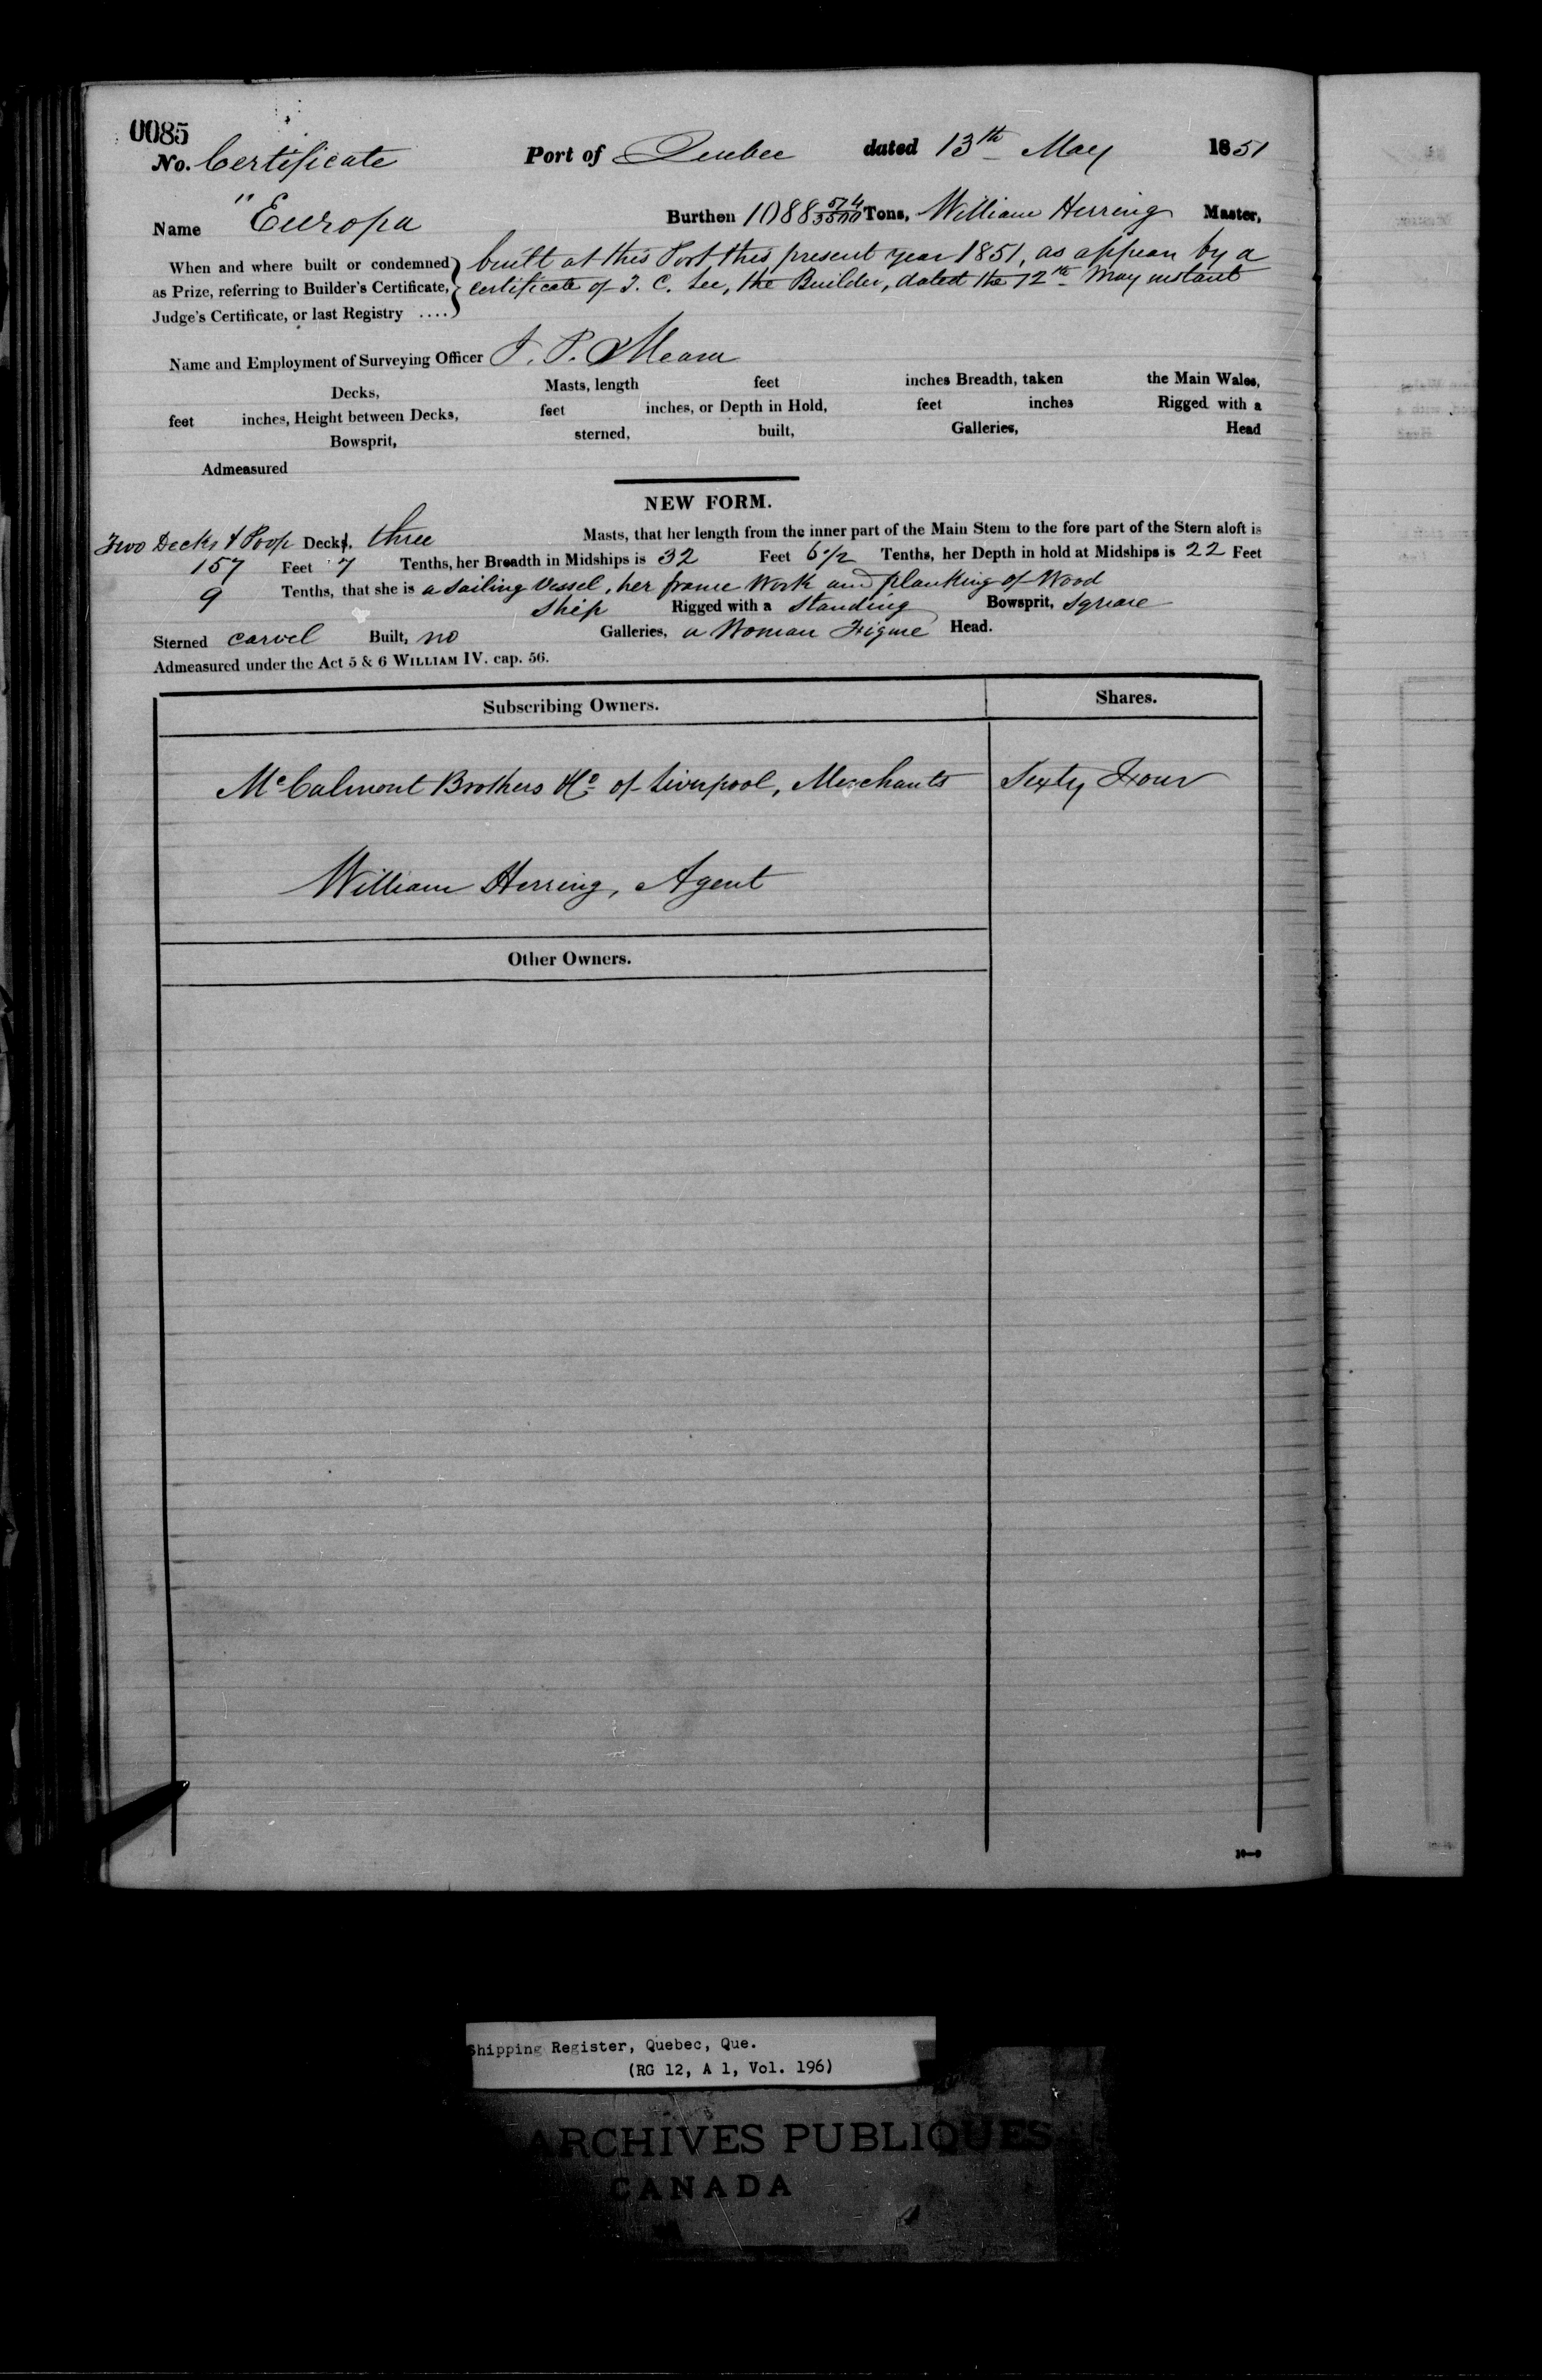 0085
No. Certificate Port of Quebec dated 13th May 1851
Name "Europa Burthen 1088 574/3500 Tons, William Herring Master,
When and where built or condemned built at this Port this present year 1851, as appear by a
as Prize, referring to Builder's Certificate, certificate of T. C. Lee, the Builder, dated the 12th May instant
Judge's Certificate, or last Registry ....
Name and Employment of Surveying Officer J. P.
Decks, Masts, length feet inches Breadth, taken the Main Wales,
feet inches, Height between Decks, feet inches, or Depth in Hold, feet inches Rigged with a
Bowsprit, sterned, built, Galleries, Head
Admeasured
NEW FORM.
Two Decks & Poop Decks. three Masts, that her length from the inner part of the Main Stem to the fore part of the Stern aloft is
157 Feet 7 Tenths, her Breadth in Midships is 32 Feet 6 1/2 Tenths, her Depth in hold at Midships is 22 Feet
9 Tenths, that she is a Sailing Vessel, her frame Work and planking of Wood
Ship Rigged with a Standing Bowsprit, Square
Sterned carvel Built, no Galleries, a Woman Figure Head.
Admeasured under the Act 5 & 6 WILLIAM IV. cap. 56.
Subscribing Owners. Shares.
McCalmont Brothers & Co of Liverpool, Merchants Sixty Four
William Herring, Agent
Other Owners.
10—9
Shipping Register, Quebec, Que.
(RG 12, A 1, Vol. 196)
ARCHIVES PUBLIQUES
CANADA